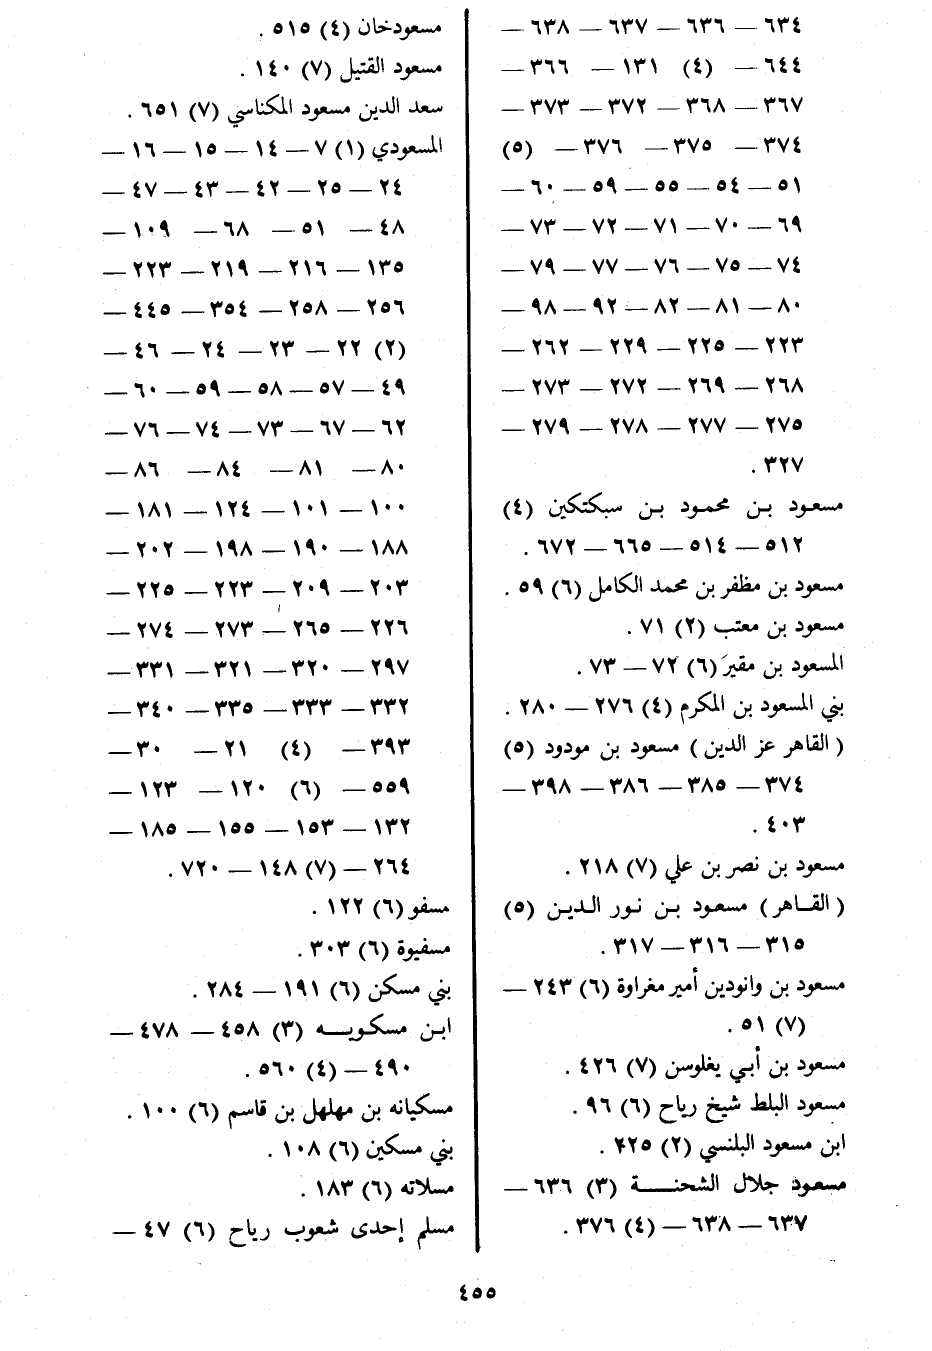 ٦٣٤ — ٦٣٦ — ٦٣٧ — ٦٣٨ —
٦٤٤ — (٤) ١٣١ — ٣٦٦ —
٣٦٧ — ٣٦٨ — ٣٧٢ — ٣٧٣ —
٣٧٤ — ٣٧٥ — ٣٧٦ — (٥)
٥١ — ٥٤ — ٥٥ — ٥٩ — ٦٠ —
٦٩ — ٧٠ — ٧١ — ٧٢ — ٧٣ —
٧٤ — ٧٥ — ٧٦ — ٧٧ — ٧٩ —
٨٠ — ٨١ — ٨٢ — ٩٢ — ٩٨ —
٢٢٣ — ٢٢٥ — ٢٢٩ — ٢٦٢ —
٢٦٨ — ٢٦٩ — ٢٧٢ — ٢٧٣ —
٢٧٥ — ٢٧٧ — ٢٧٨ — ٢٧٩ —
٣٢٧ .
مسعود بن محمود بن سبكتكين (٤)
٥١٢ — ٥١٤ — ٦٦٥ — ٦٧٢ .
مسعود بن مظفر بن محمد الكامل (٦) ٥٩ .
مسعود بن معتب (٢) ٧١ .
المسعود بن مقيرَ (٦) ٧٢ — ٧٣ .
بني المسعود بن المكرم (٤) ٢٧٦ — ٢٨٠ .
( القاهر عز الدين ) مسعود بن مودود (٥)
٣٧٤ — ٣٨٥ — ٣٨٦ — ٣٩٨ —
٤٠٣ .
مسعود بن نصر بن علي (٧) ٢١٨ .
( القاهر ) مسعود بن نور الدين (٥)
٣١٥ — ٣١٦ — ٣١٧ .
مسعود بن وانودين أمير مغراوة (٦) ٢٤٣ —
(٧) ٥١ .
مسعود بن أبي يغلوسن (٧) ٤٢٦ .
مسعود البلط شيخ رياح (٦) ٩٦ .
ابن مسعود البلنسي (٢) ٤٢٥ .
مسعود جلال الشحنة (٣) ٦٣٦ —
٦٣٧ — ٦٣٨ — (٤) ٣٧٦ .
مسعودخان (٤) ٥١٥ .
مسعود القتيل (٧) ١٤٠ .
سعد الدين مسعود المكناسي (٧) ٦٥١ .
المسعودي (١) ٧ — ١٤ — ١٥ — ١٦ —
٢٤ — ٢٥ — ٤٢ — ٤٣ — ٤٧ —
٤٨ — ٥١ — ٦٨ — ١٠٩ —
١٣٥ — ٢١٦ — ٢١٩ — ٢٢٣ —
٢٥٦ — ٢٥٨ — ٣٥٤ — ٤٤٥ —
(٢) ٢٢ — ٢٣ — ٢٤ — ٤٦ —
٤٩ — ٥٧ — ٥٨ — ٥٩ — ٦٠ —
٦٢ — ٦٧ — ٧٣ — ٧٤ — ٧٦ —
٨٠ — ٨١ — ٨٤ — ٨٦ —
١٠٠ — ١٠١ — ١٢٤ — ١٨١ —
١٨٨ — ١٩٠ — ١٩٨ — ٢٠٢ —
٢٠٣ — ٢٠٩ — ٢٢٣ — ٢٢٥ —
٢٢٦ — ٢٦٥ — ٢٧٣ — ٢٧٤ —
٢٩٧ — ٣٢٠ — ٣٢١ — ٣٣١ —
٣٣٢ — ٣٣٣ — ٣٣٥ — ٣٤٠ —
٣٩٣ — (٤) ٢١ — ٣٠ —
٥٥٩ — (٦) ١٢٠ — ١٢٣ —
١٣٢ — ١٥٣ — ١٥٥ — ١٨٥ —
٢٦٤ — (٧) ١٤٨ — ٧٢٠ .
مسفو (٦) ١٢٢ .
مسفيوة (٦) ٣٠٣ .
بني مسكن (٦) ١٩١ — ٢٨٤ .
ابن مسكويه (٣) ٤٥٨ — ٤٧٨ —
٤٩٠ — (٤) ٥٦٠ .
مسكيانه بن مهلهل بن قاسم (٦) ١٠٠ .
بني مسكين (٦) ١٠٨ .
مسلاته (٦) ١٨٣ .
مسلم إحدى شعوب رياح (٦) ٤٧ —
٤٥٥